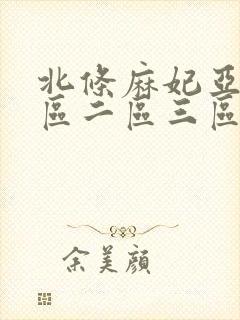 北條麻妃亞
區二區三區
余美顏